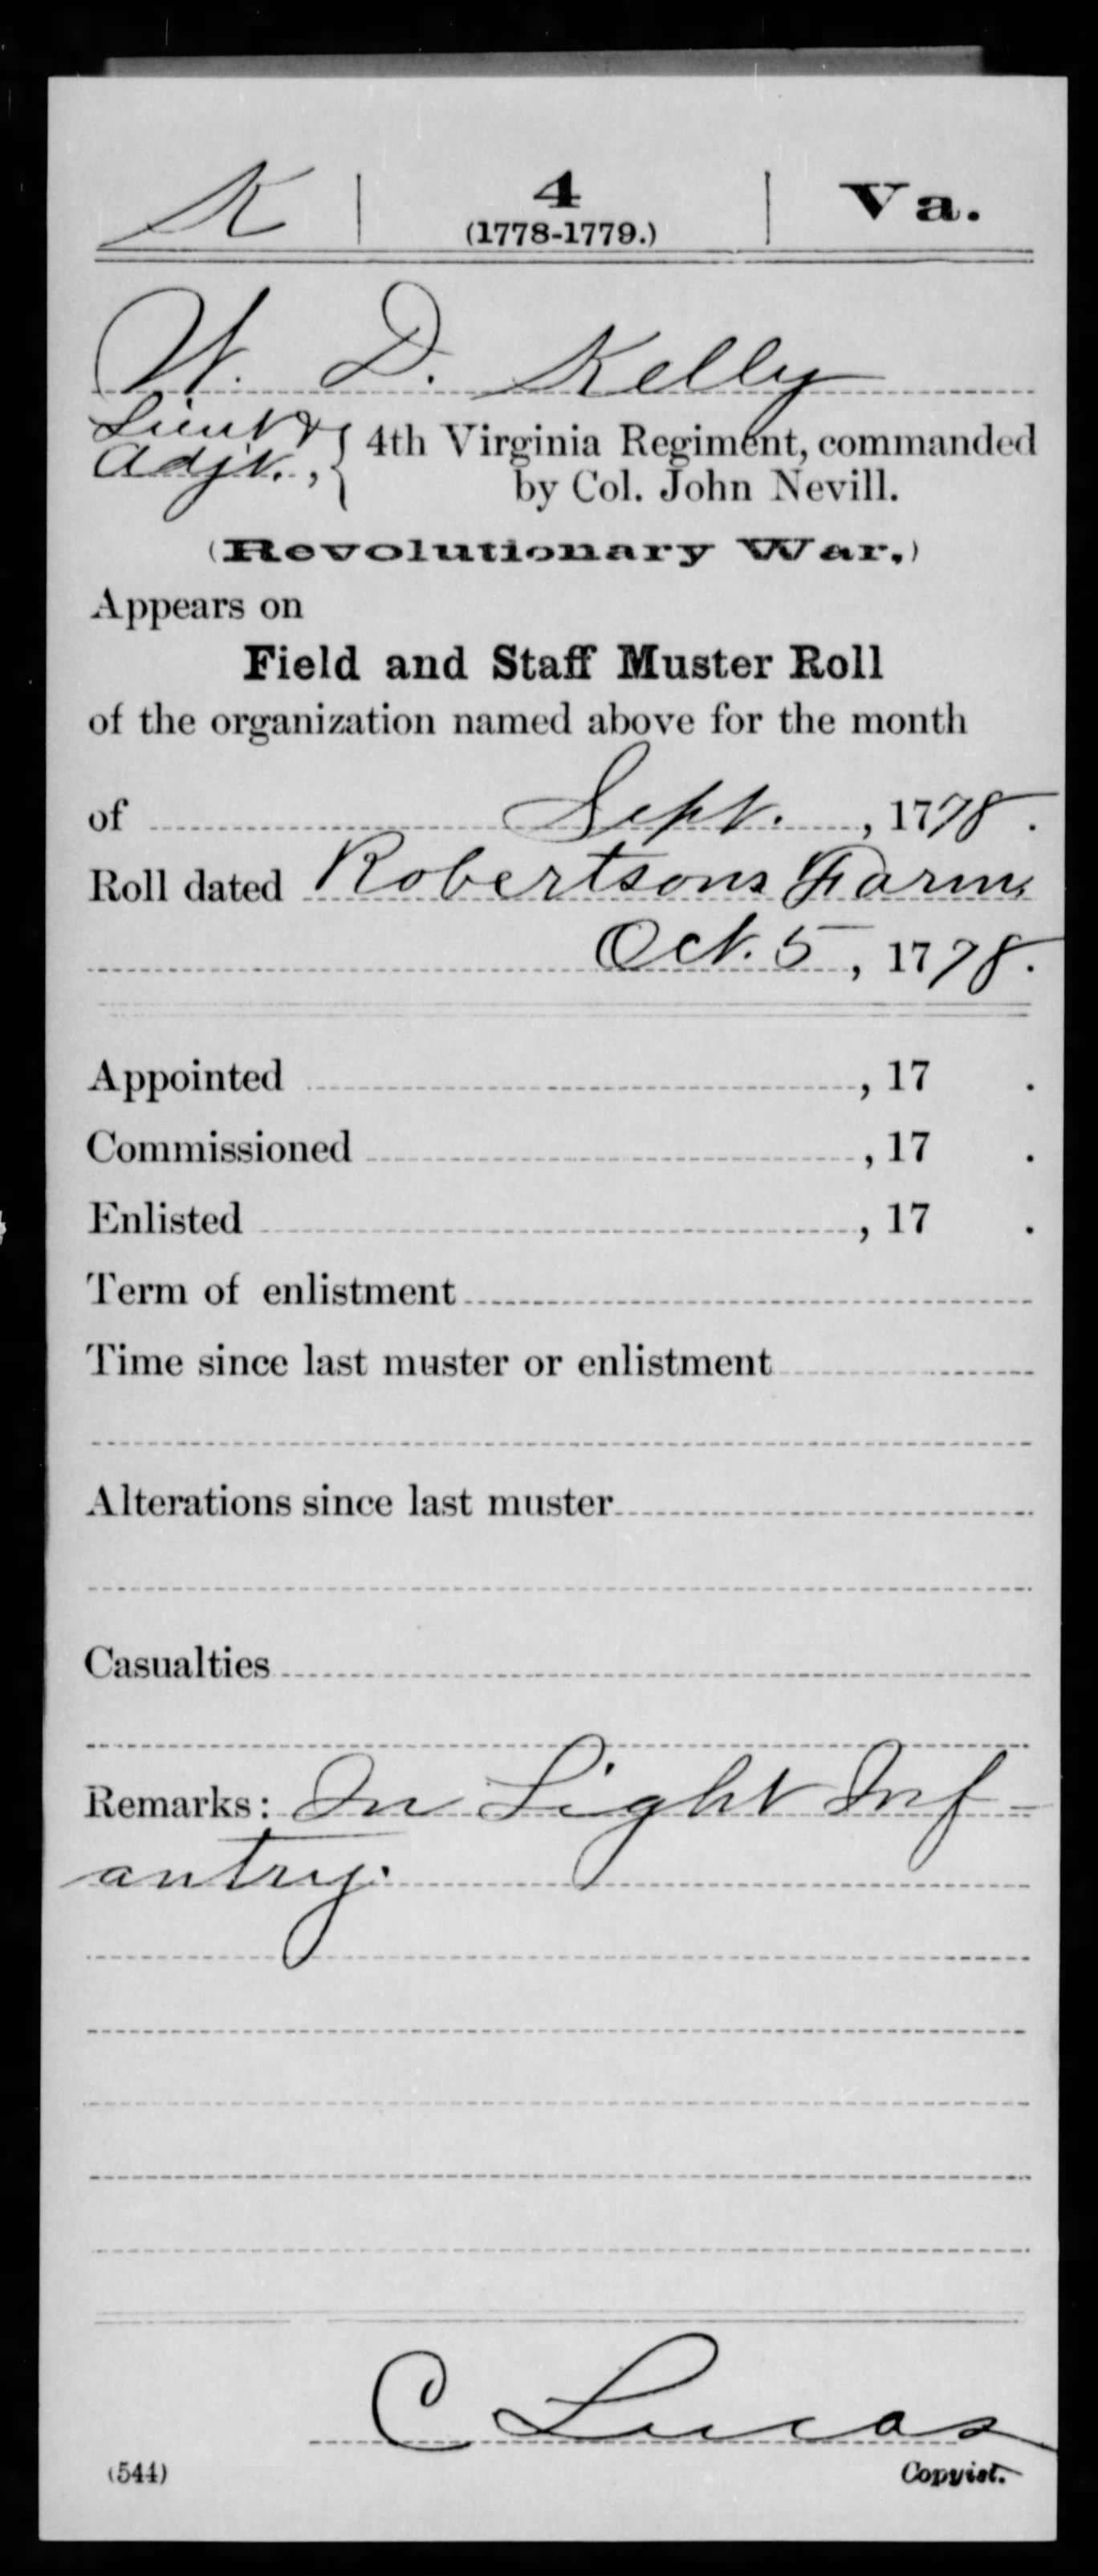 K | 4 | Va.
(1778-1779.)
W. D. Kelly
Lieut &
Adjt., { 4th Virginia Regiment, commanded
by Col. John Nevill.
(Revolutionary War.)
Appears on
Field and Staff Muster Roll
of the organization named above for the month
of Sept., 1778.
Roll dated Robertsons Farm
Oct. 5, 1778.
Appointed , 17 .
Commissioned , 17 .
Enlisted , 17 .
Term of enlistment
Time since last muster or enlistment
Alterations since last muster
Casualties
Remarks: In Light Inf-
antry.
C Lucas
(544) Copyist.